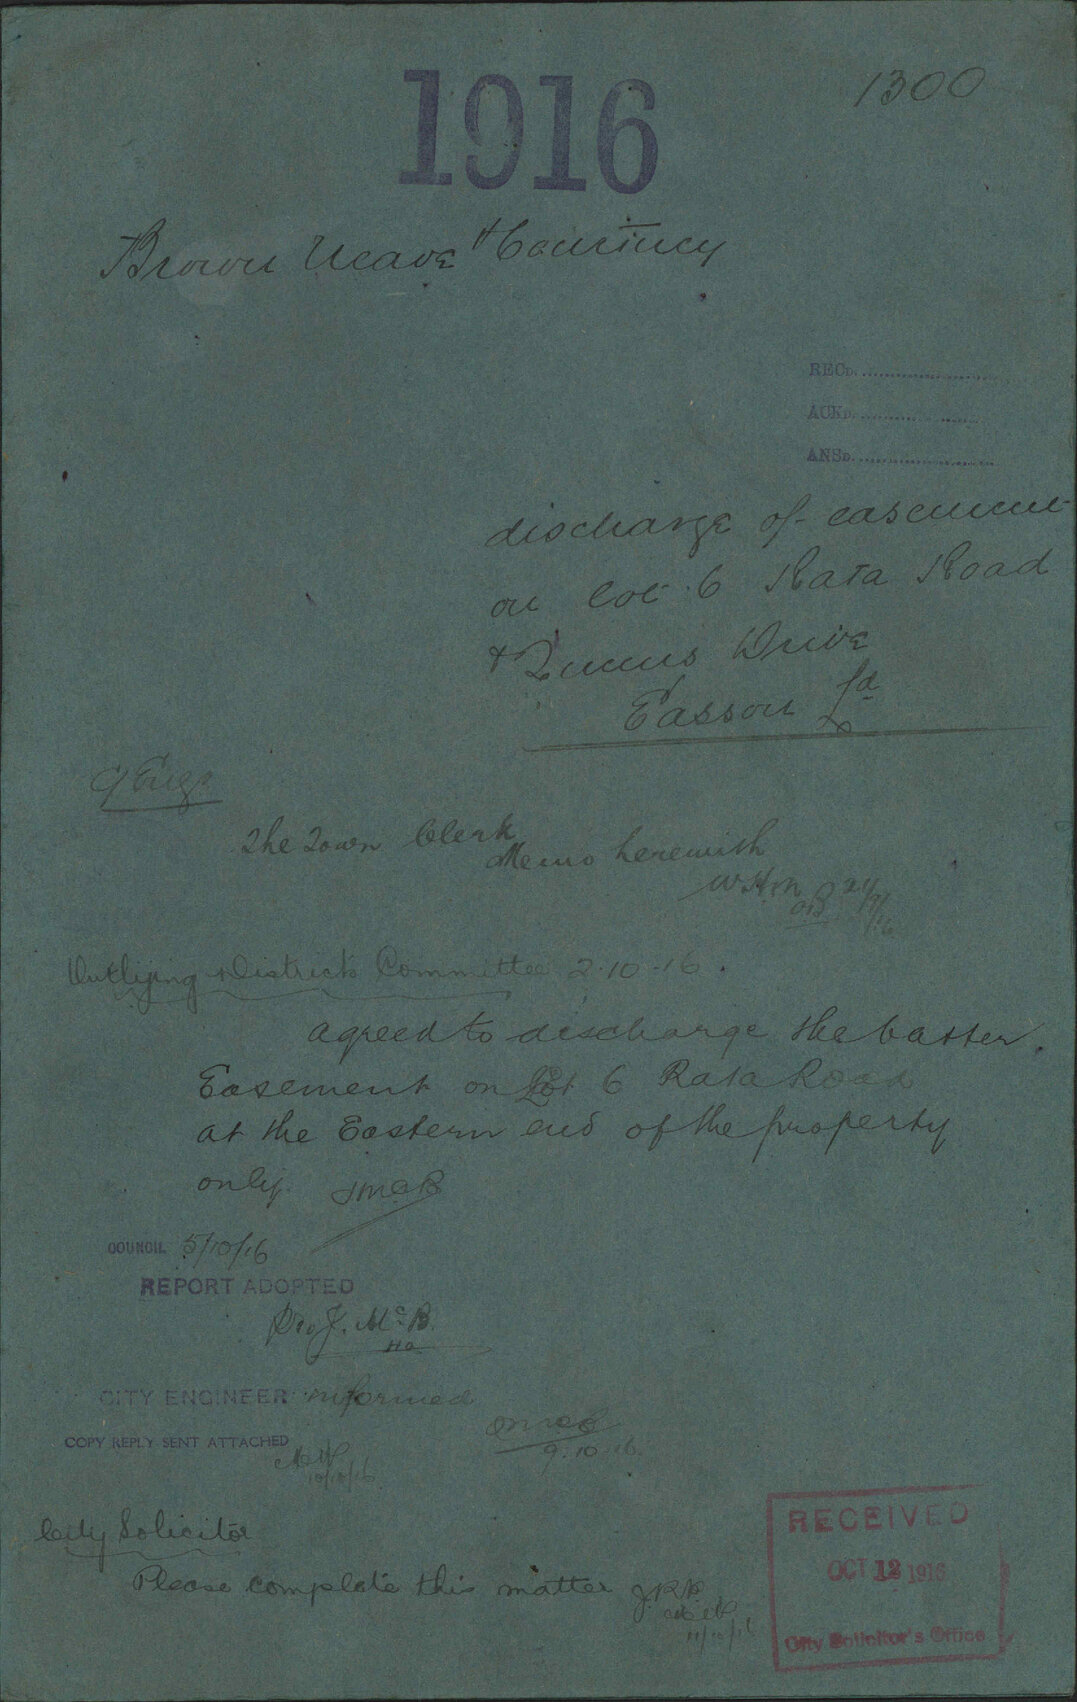 1300
1916
Brown Neave & Courtney
RECD.
ACKD.
ANSD.
discharge of easement
on lot 6 Rata Road
& Queens Drive
Easson
C/Engr
The Town Clerk
Memo herewith
WHM
Outlying Districts Committee 2.10.16.
agreed to discharge the batter
Easement on Lot 6 Rata Road
at the Eastern end of the property
only.
COUNCIL 5/10/16
REPORT ADOPTED
J. McB.
CITY ENGINEER informed
9.10.16.
COPY REPLY SENT ATTACHED
10/10/16
City Solicitor
Please complete this matter
11/10/16
RECEIVED
OCT 12 1916
City Solicitor's Office